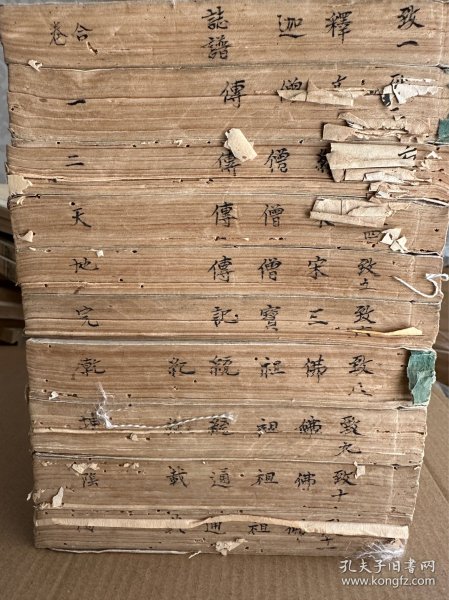 致一 釋迦誌譜 合卷
傳 一
僧傳 二
四 僧傳 天
致五 宋僧傳 地
致六 三寶記 完
致八 佛祖統紀 乾
致九 佛祖統 坤
致十 佛祖通載 陰
佛祖通
孔夫子旧书网
www.kongfz.com